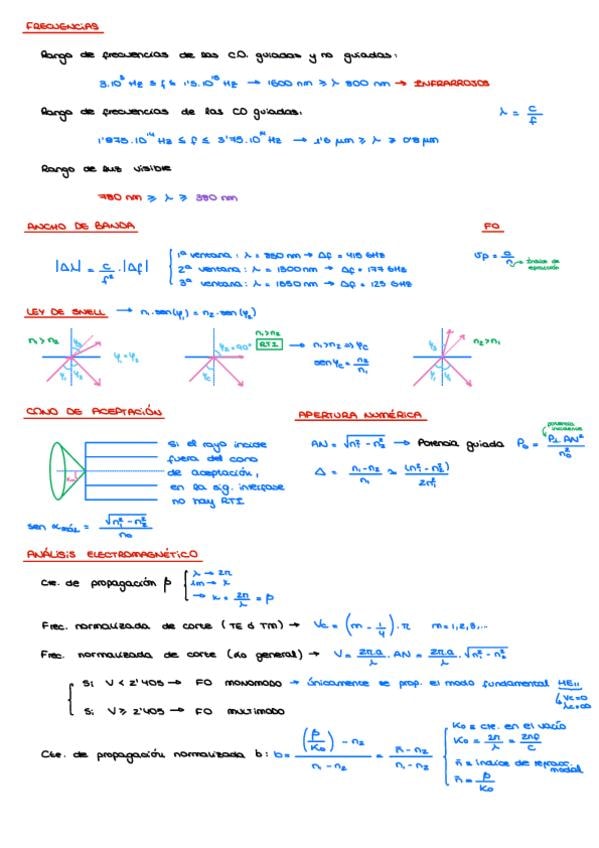 FRECUENCIAS
Rango de frecuencias de las CO. guiadas y no guiadas:
3·10⁸ Hz ≤ f ≤ 1'5·10¹⁵ Hz → 1600 nm ≥ λ 800 nm → INFRARROJOS
Rango de frecuencias de las CO guiadas: λ = c/f
1'875·10¹⁴ Hz ≤ f ≤ 3'75·10¹⁴ Hz → 1'6 μm ≥ λ ≥ 0'8 μm
Rango de luz visible
780 nm ≥ λ ≥ 380 nm
ANCHO DE BANDA FO
|Δλ| = c/f² · |Δf|
1ª ventana: λ = 850 nm → Δf = 415 GHz
2ª ventana: λ = 1300 nm → Δf = 177 GHz
3ª ventana: λ = 1550 nm → Δf = 125 GHz
índice de
LEY DE SNELL → n₁·sen(φ₁) = n₂·sen(φ₂)
n₁ > n₂
φ₁ = φ₂
φ₂ = 90°
φc
n₁ > n₂
RTI → n₁ > n₂ ⇒ φc
sen φc = n₂/n₁
n₂ > n₁
CONO DE ACEPTACIÓN
Si el rayo incide
fuera del cono
de aceptación,
en la sig. interfase
no hay RTI
sen α máx = √(n₁² - n₂²)/n₀
APERTURA NUMÉRICA
potencia
incidente
AN = √(n₁² - n₂²) → Potencia guiada P₀ = P⊥ AN²/n₀²
Δ = (n₁ - n₂)/n₁ ≃ (n₁² - n₂²)/2n₁²
ANÁLISIS ELECTROMAGNÉTICO
Cte. de propagación β
λ → 2π
1m → k
→ k = 2π/λ = β
Frec. normalizada de corte (TE ó TM) → Vc = (m - 1/4)·π m = 1,2,3,...
Frec. normalizada de corte (Uso general) → V = 2π·a/λ · AN = 2π·a/λ · √(n₁² - n₂²)
Si V < 2'405 → FO MONOMODO → únicamente se prop. el modo fundamental HE₁₁
↳ Vc=0
λc=∞
Si V ≥ 2'405 → FO MULTIMODO
Cte. de propagación normalizada b: b = ((β/K₀) - n₂)/(n₁ - n₂) = (n̄ - n₂)/(n₁ - n₂)
K₀ = cte. en el vacío
K₀ = 2π/λ = 2πf/c
n̄ = índice de refracc. modal
n̄ = β/K₀